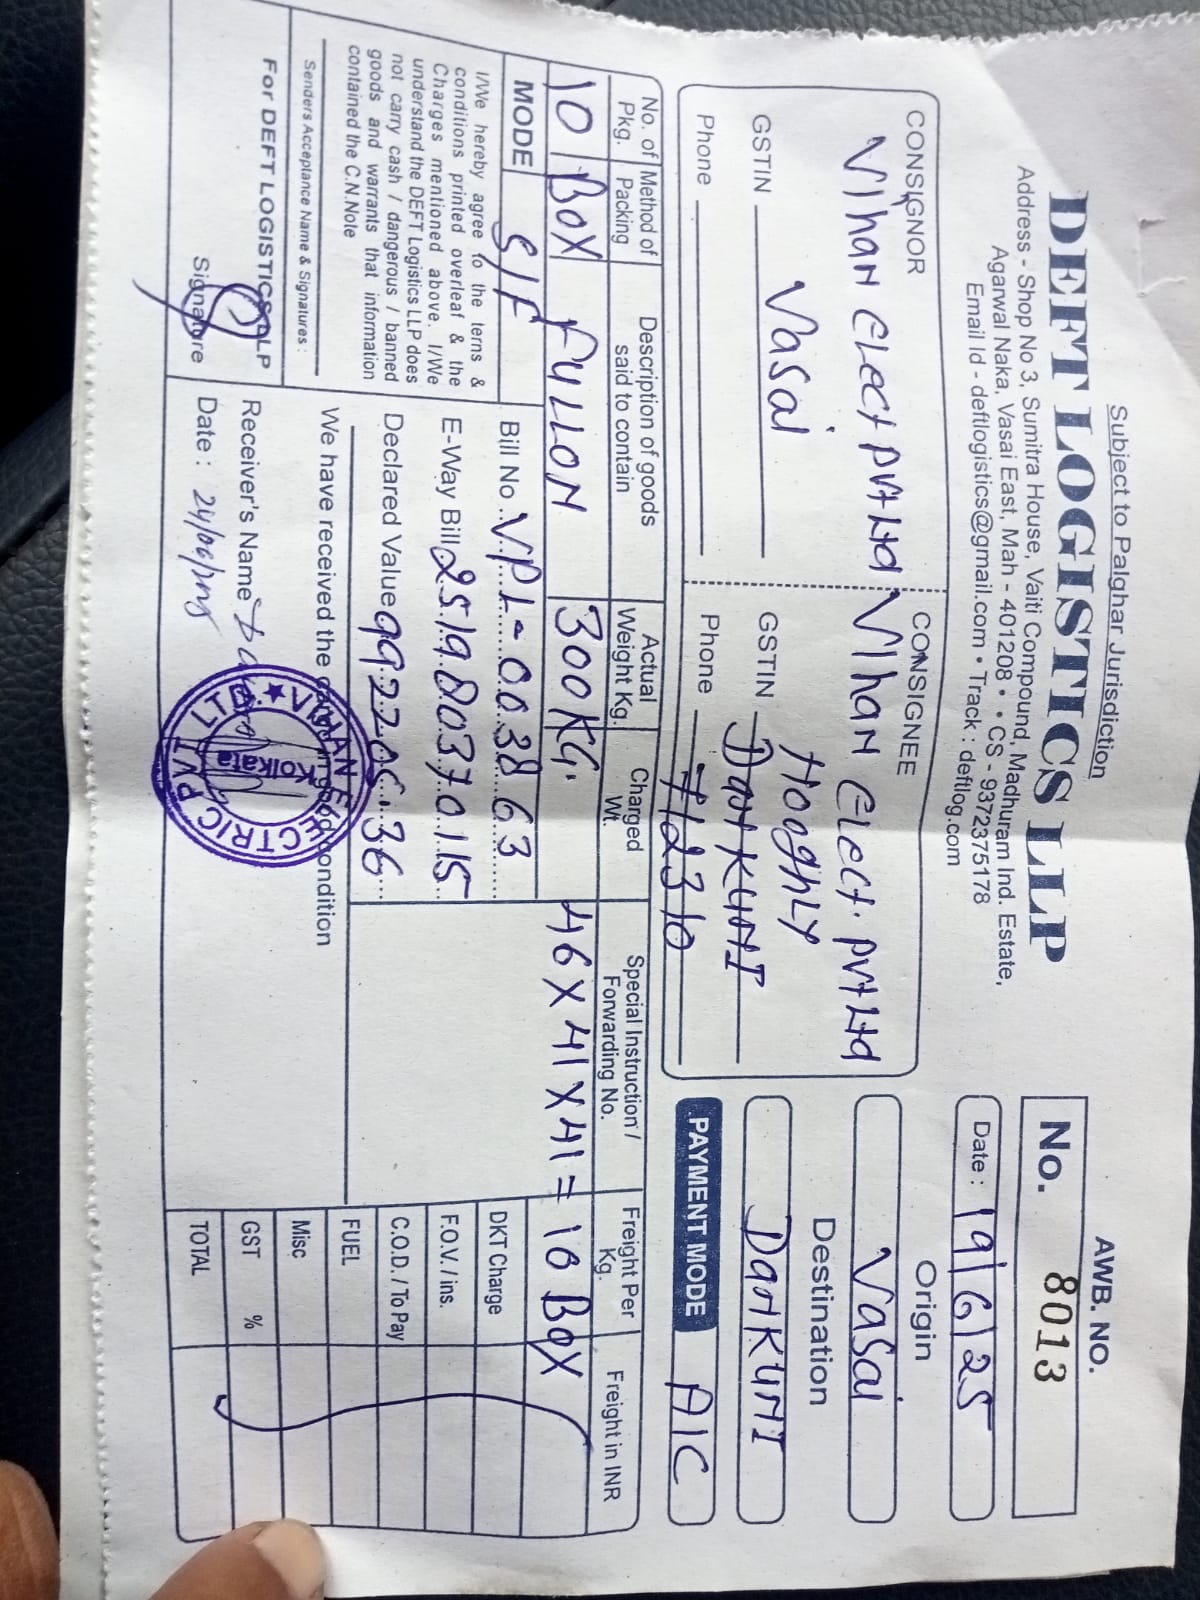 Subject to Palghar Jurisdiction
DEFT LOGISTICS LLP
Address - Shop No 3, Sumitra House, Vaiti Compound, Madhuram Ind. Estate,
Agarwal Naka, Vasai East, Mah - 401208 • • CS - 9372375178
Email Id - deftlogistics@gmail.com • Track : deftlog.com
AWB. NO.
No. 8013
Date : 19/6/25
CONSIGNOR
Vihan Elect pvt Ltd
Vasai
GSTIN
Phone
CONSIGNEE
Vihan Elect. pvt Ltd
Hooghly
GSTIN DanKUNI
Phone 712310
Origin
Vasai
Destination
DanKUNI
PAYMENT MODE A/C
No. of Pkg.
Method of Packing
Description of goods said to contain
Actual Weight Kg.
Charged Wt.
Special Instruction / Forwarding No.
Freight Per Kg.
Freight in INR
10 BOX FULLON 300KG. 46 X 41 X 41 = 10 BOX
MODE S/F
I/We hereby agree to the terns &
conditions printed overleaf & the
Charges mentioned above. I/We
understand the DEFT Logistics LLP does
not carry cash / dangerous / banned
goods and warrants that information
contained the C.N.Note
Senders Acceptance Name & Signatures :
For DEFT LOGISTICS LLP
Signature
Bill No. VPL-003863
E-Way Bill 251980370115
Declared Value 992205.36
We have received the good condition
Receiver's Name
Date : 24/06/
VIHAN ELECTRIC PVT. LTD.
Kolkata
DKT Charge
F.O.V. / ins.
C.O.D. / To Pay
FUEL
Misc
GST %
TOTAL